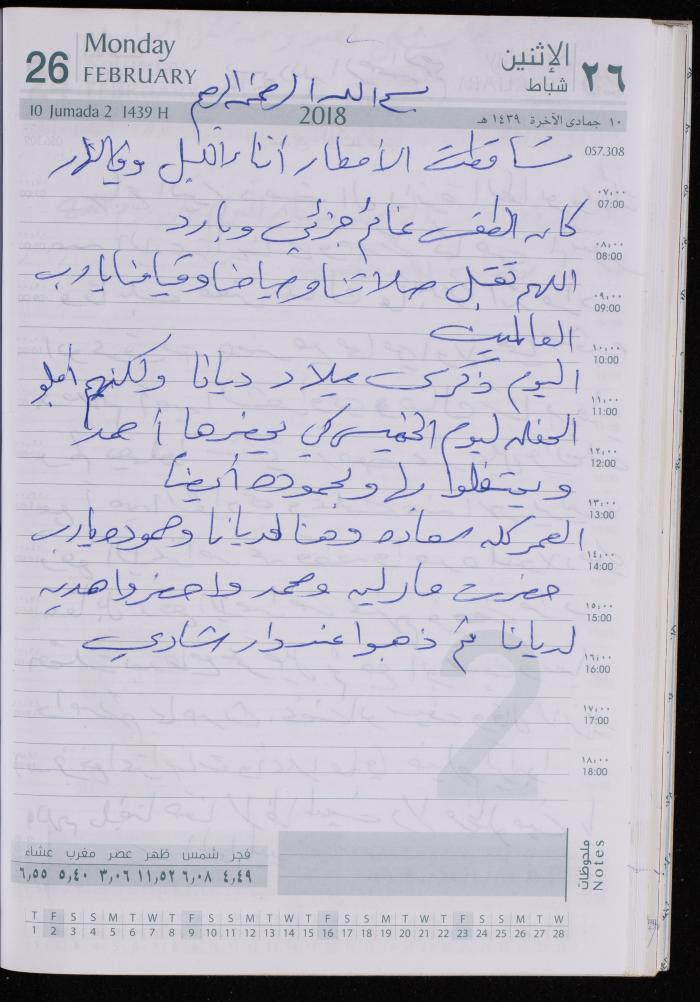 26 Monday FEBRUARY
الإثنين شباط ٢٦
بسم الله الرحمن الرحيم
10 Jumada 2 1439 H 2018 ١٠ جمادى الآخرة ١٤٣٩ هـ
057.308
تساقطت الأمطار أثناء الليل وفي النهار
٠٧,٠٠ 07:00
كان الطقس غائم جزئي وبارد
٠٨,٠٠ 08:00
اللهم تقبل صلاتنا وصيامنا وقيامنا يا رب
٠٩,٠٠ 09:00
العالمين
١٠,٠٠ 10:00
اليوم ذكرى ميلاد ديانا ولكنهم أجلو
١١,٠٠ 11:00
الحفله ليوم الخميس كي يحضرها أحمد
١٢,٠٠ 12:00
ويحتفلوا بها ولحموده أيضاً
١٣,٠٠ 13:00
العمر كله سعاده وهنا لديانا وحموده يا رب
١٤,٠٠ 14:00
حضرت مارلين ومحمد واحضروا هديه
١٥,٠٠ 15:00
لديانا ثم ذهبوا عند دار شادي
١٦,٠٠ 16:00
١٧,٠٠ 17:00
2
١٨,٠٠ 18:00
ملحوظات Notes
فجر شمس ظهر عصر مغرب عشاء
٤,٤٩ ٦,٠٨ ١١,٥٢ ٣,٠٦ ٥,٤٠ ٦,٥٥
T F S S M T W T F S S M T W T F S S M T W T F S S M T W
1 2 3 4 5 6 7 8 9 10 11 12 13 14 15 16 17 18 19 20 21 22 23 24 25 26 27 28